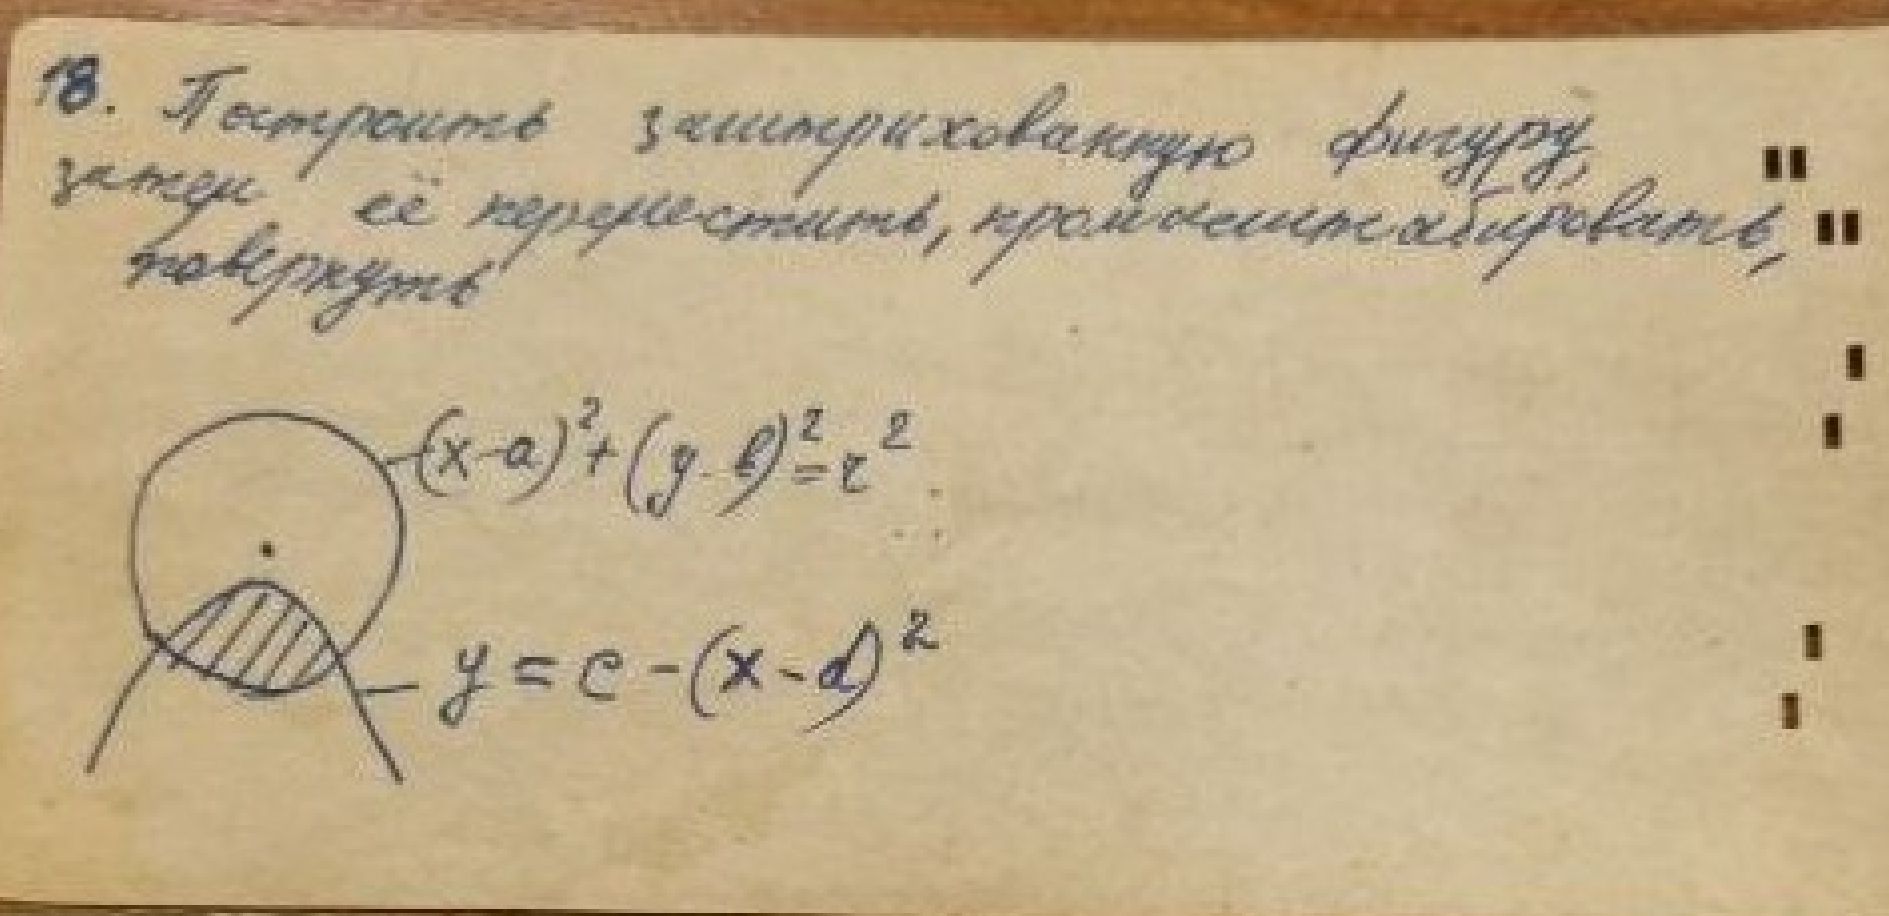 18. Построить заштрихованную фигуру,
затем её переместить, промасштабировать,
повернуть
(x-a)²+(y-b)²=r²
y=c-(x-d)²